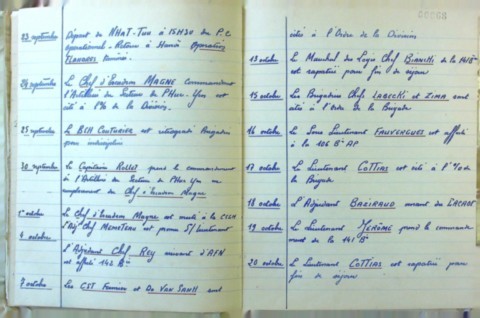 23 septembre Départ de NHAT-TUU à 15H30 du P.C
opérationnel - Retour à Hanoï Opération
FLANDRES terminée.
24 septembre Le Chef d'Escadron MAGNE commandant
l'Artillerie du Secteur de PHU-LY est
cité à l'O de la Division.
25 septembre Le BCH COUTURIER est rétrogradé Brigadier
pour indiscipline
30 septembre Le Capitaine Rollet prend le commandement
de l'Artillerie du Secteur de en
remplacement du Chef d'Escadron Magne
1er octobre Le Chef d'Escadron Magne est muté à la
l'Adj Chef est promu S/Lieutenant
4 octobre
L'Adjudant Chef REY venant d'AFN
est affecté 142 Bie
7 octobre Les CST Fournier et De Van sont
cité à l'Ordre de la Division
13 octobre Le Maréchal des Logis Chef BIANCHI de la 141 Bie
est rapatrié pour fin de séjour
15 octobre Les Brigadiers Chef LABECKI et ZIMA sont
cités à l'Ordre de la Brigade
16 octobre Le Sous Lieutenant FAUVERGUES est affecté
à la 106 Bie AP
17 octobre Le Lieutenant COTTIAS est cité à l'O de
la Brigade
18 octobre L'Adjudant BOZIRAUD venant du
19 octobre Le Lieutenant JÉRÔME prend le commande
ment de la 141 Bie
20 octobre Le Lieutenant COTTIAS est rapatrié pour
fin de séjour